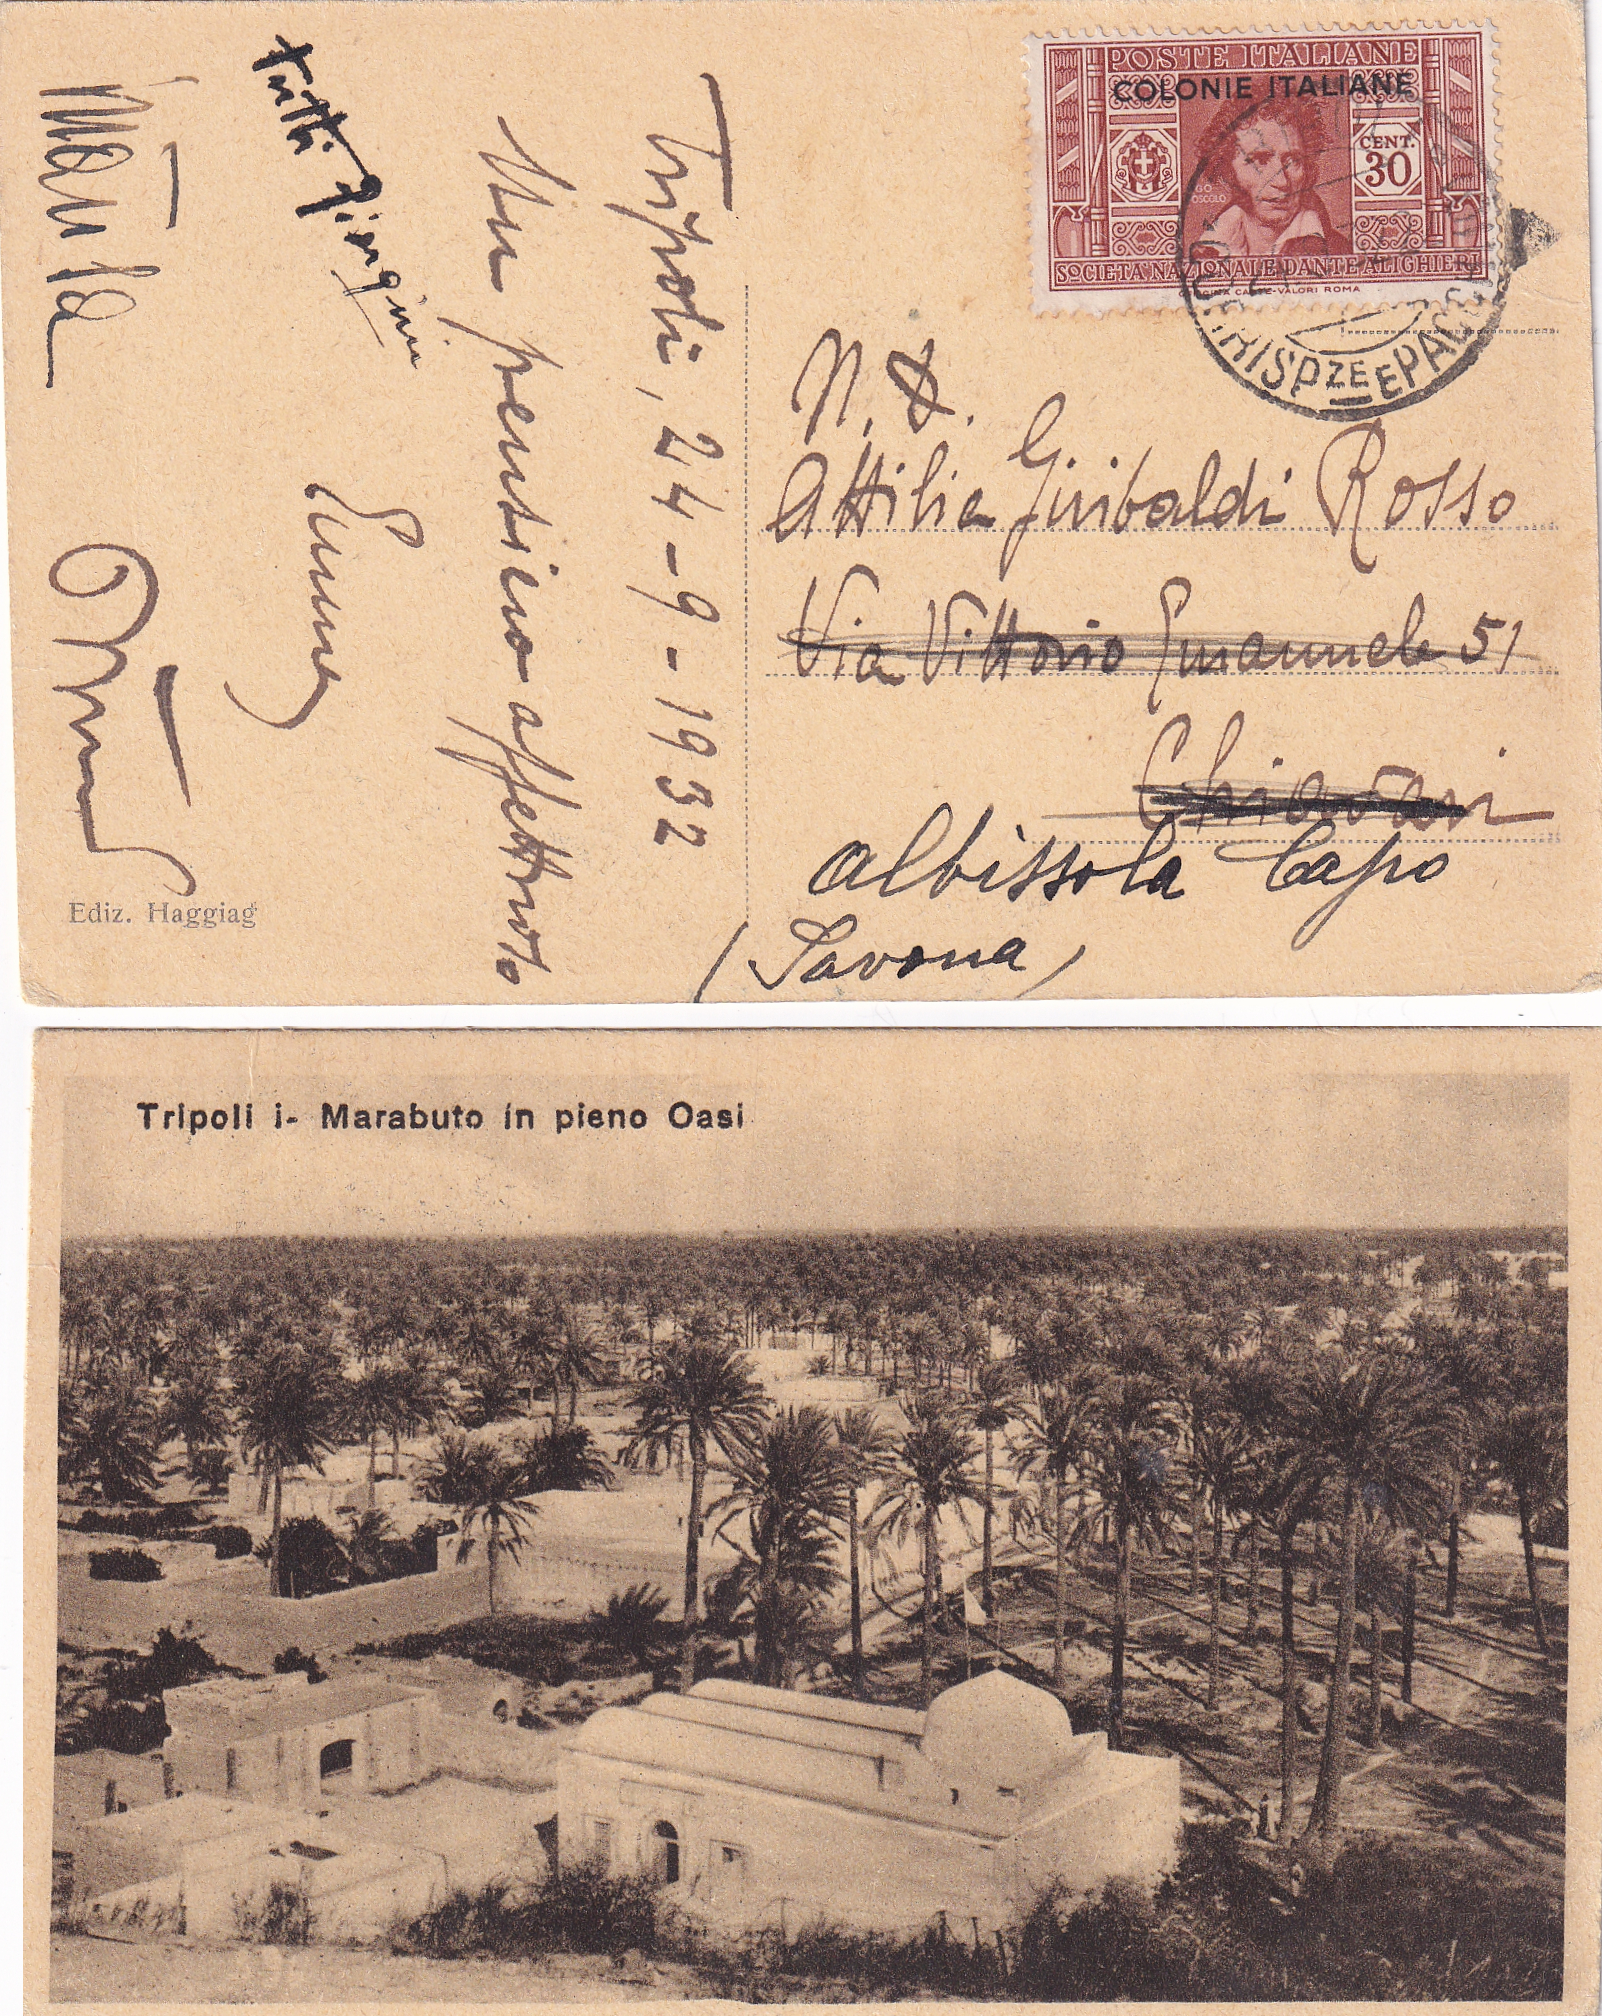 POSTE ITALIANE
COLONIE ITALIANE
CENT.
30
SOCIETÀ NAZIONALE DANTE ALIGHIERI
OFFICINA CARTE-VALORI ROMA
CORRISPZE E PACCHI
Tripoli, 24-9-1932
Un pensiero affettuoso
tutti
Ediz. Haggiag
N. D.
Attilia Giribaldi Rosso
Via Vittorio Emanuele 51
Chiavari
Albissola Capo
(Savona)
Tripoli i- Marabuto in pieno Oasi